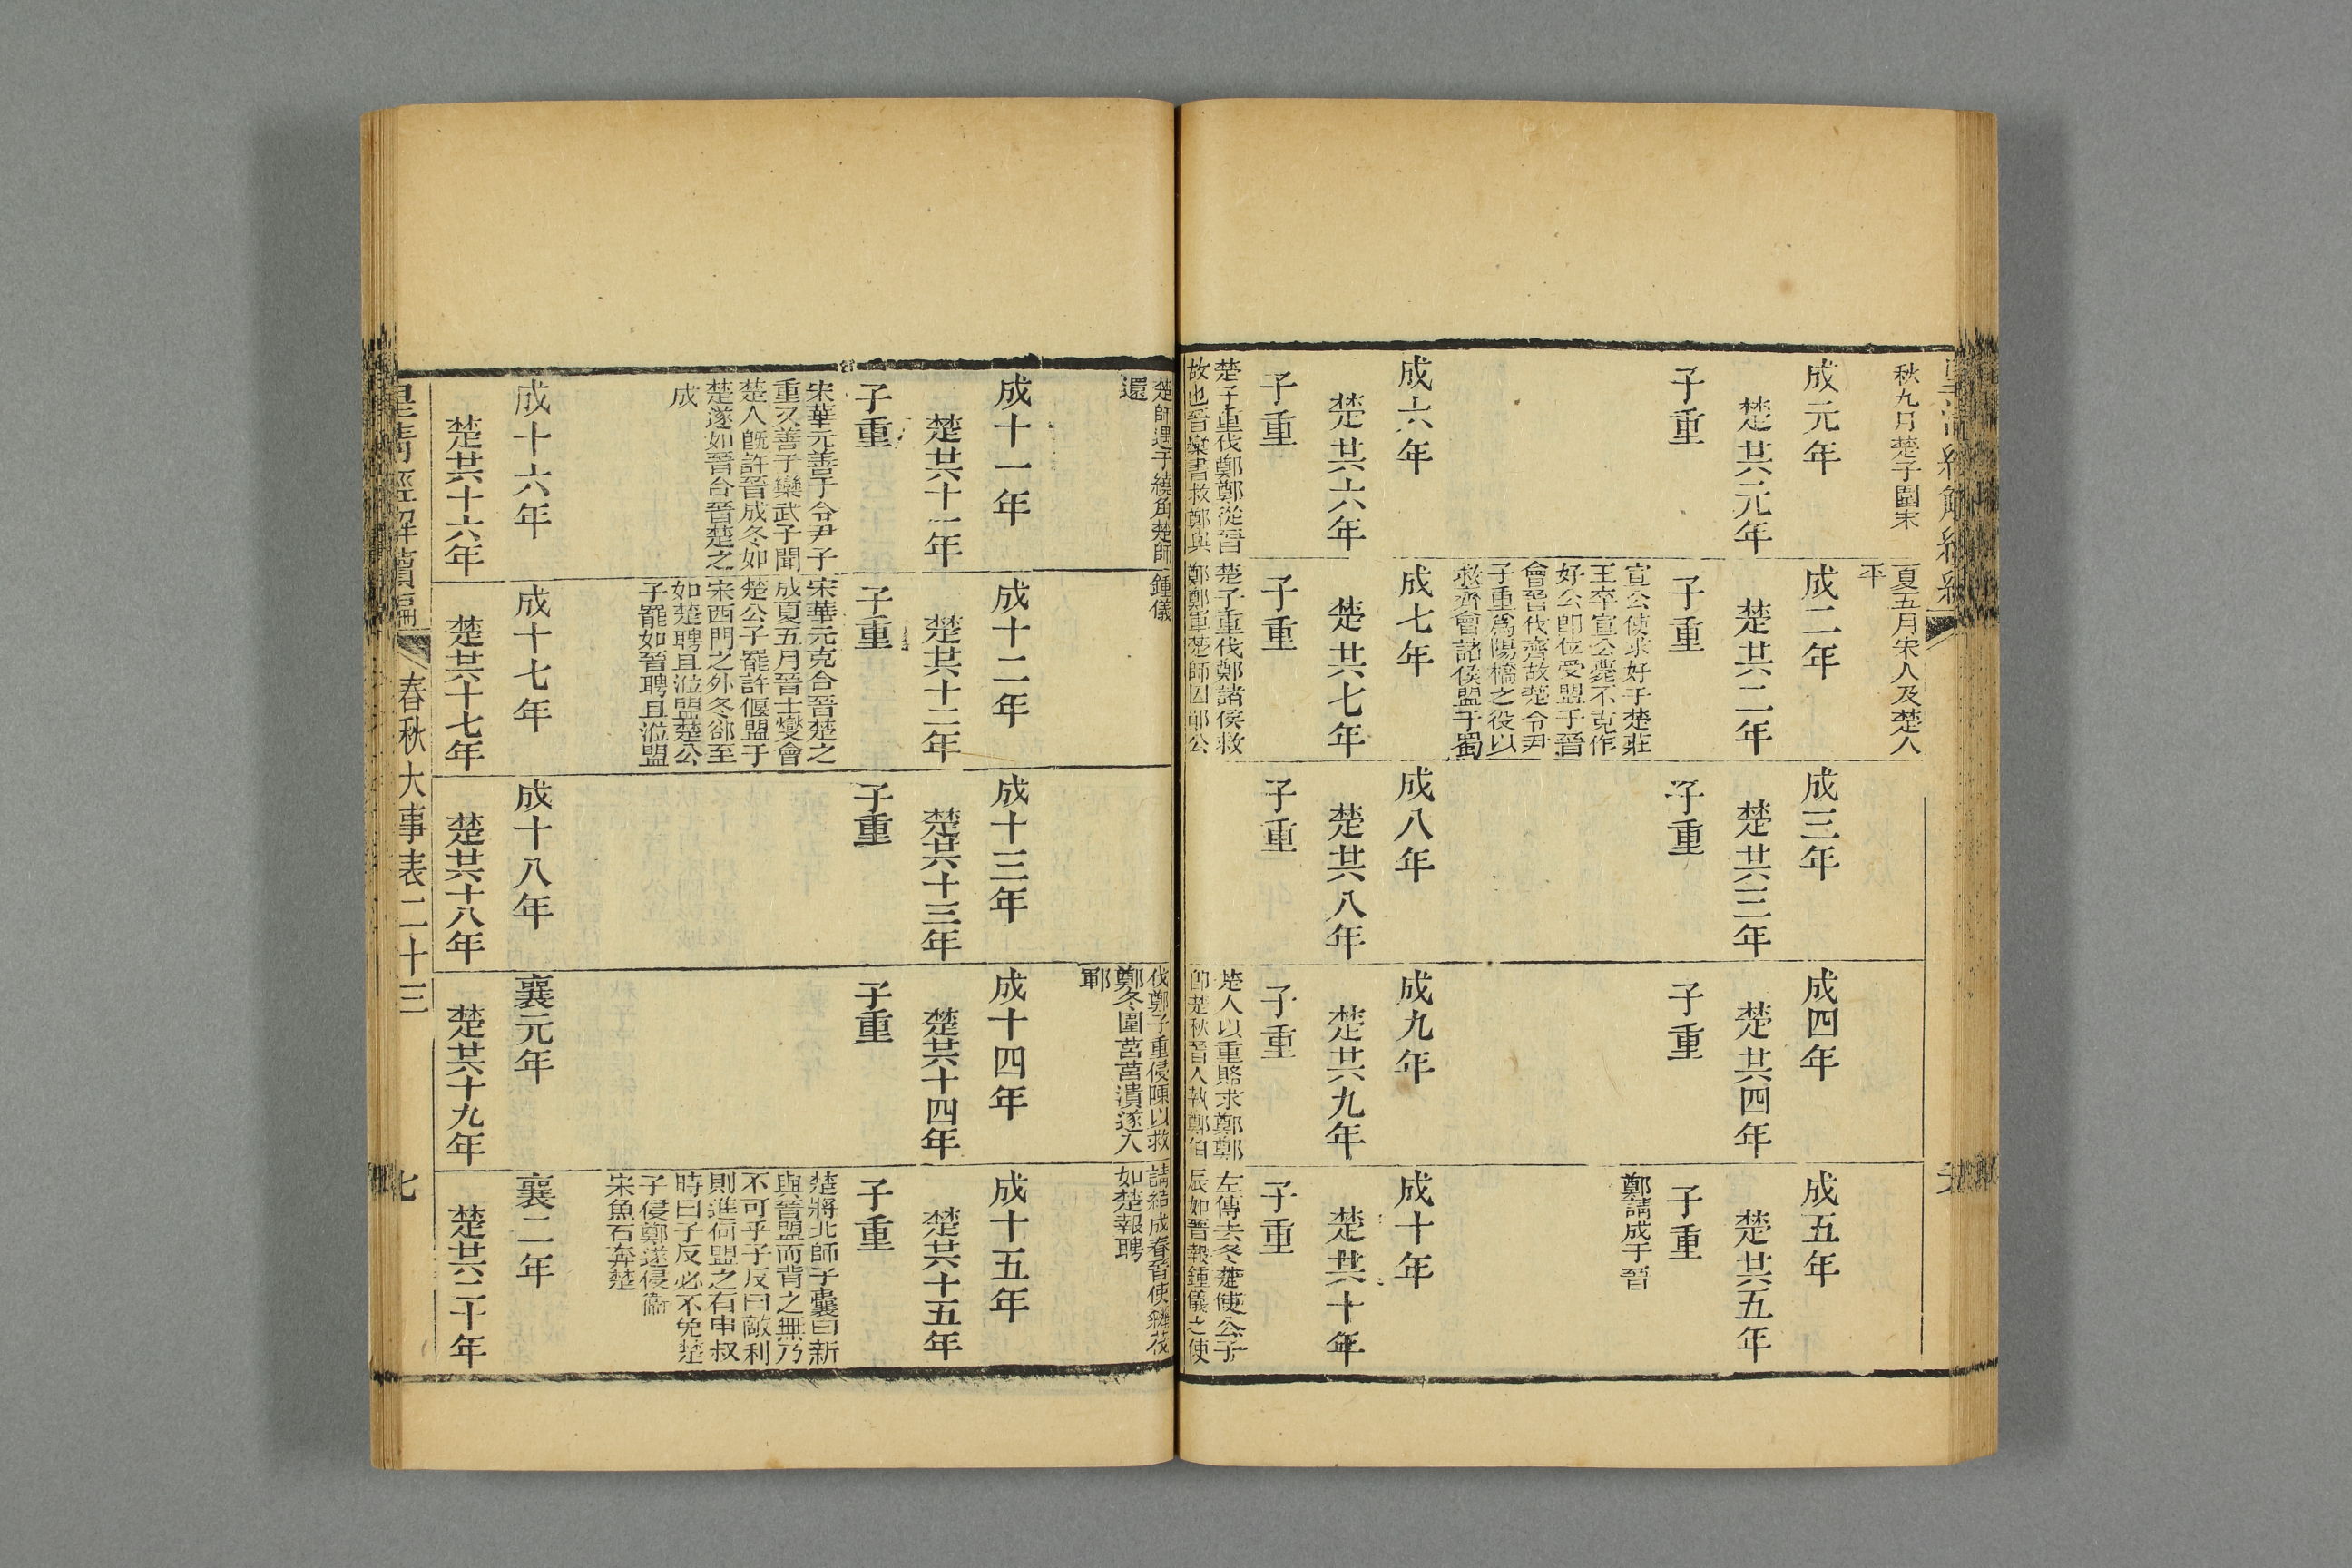 秋九月楚子圍宋
夏五月宋人及楚人
平
成元年
楚共元年
子重
成二年
楚共二年
子重
宣公使求好于楚莊
王卒宣公薨不克作
好公卽位受盟于晉
會晉伐齊故楚令尹
子重爲陽橋之役以
救齊會諸侯盟于蜀
成三年
楚共三年
子重
成四年
楚共四年
子重
成五年
楚共五年
子重
鄭請成于晉
成六年
楚共六年
子重
楚子重伐鄭鄭從晉
故也晉欒書救鄭與
成七年
楚共七年
子重
楚子重伐鄭諸侯救
鄭鄭軍楚師囚鄖公
成八年
楚共八年
子重
成九年
楚共九年
子重
楚人以重賂求鄭鄭
卽楚秋晉人執鄭伯
成十年
楚共十年
子重
左傳去冬楚使公子
辰如晉報鍾儀之使
楚師遇于繞角楚師
還
鍾儀
伐鄭子重侵陳以救
鄭冬圍莒莒潰遂入
鄆
請結成春晉使糴茷
如楚報聘
成十一年
楚共十一年
子重
宋華元善于令尹子
重又善于欒武子聞
楚人旣許晉成冬如
楚遂如晉合晉楚之
成
成十二年
楚共十二年
子重
宋華元克合晉楚之
成夏五月晉士燮會
楚公子罷許偃盟于
宋西門之外冬郤至
如楚聘且涖盟楚公
子罷如晉聘且涖盟
成十三年
楚共十三年
子重
成十四年
楚共十四年
子重
成十五年
楚共十五年
子重
楚將北師子囊曰新
與晉盟而背之無乃
不可乎子反曰敵利
則進何盟之有申叔
時曰子反必不免楚
子侵鄭遂侵衞
宋魚石奔楚
成十六年
楚共十六年
成十七年
楚共十七年
成十八年
楚共十八年
襄元年
楚共十九年
襄二年
楚共二十年
皇清經解續編
春秋大事表二十三
七